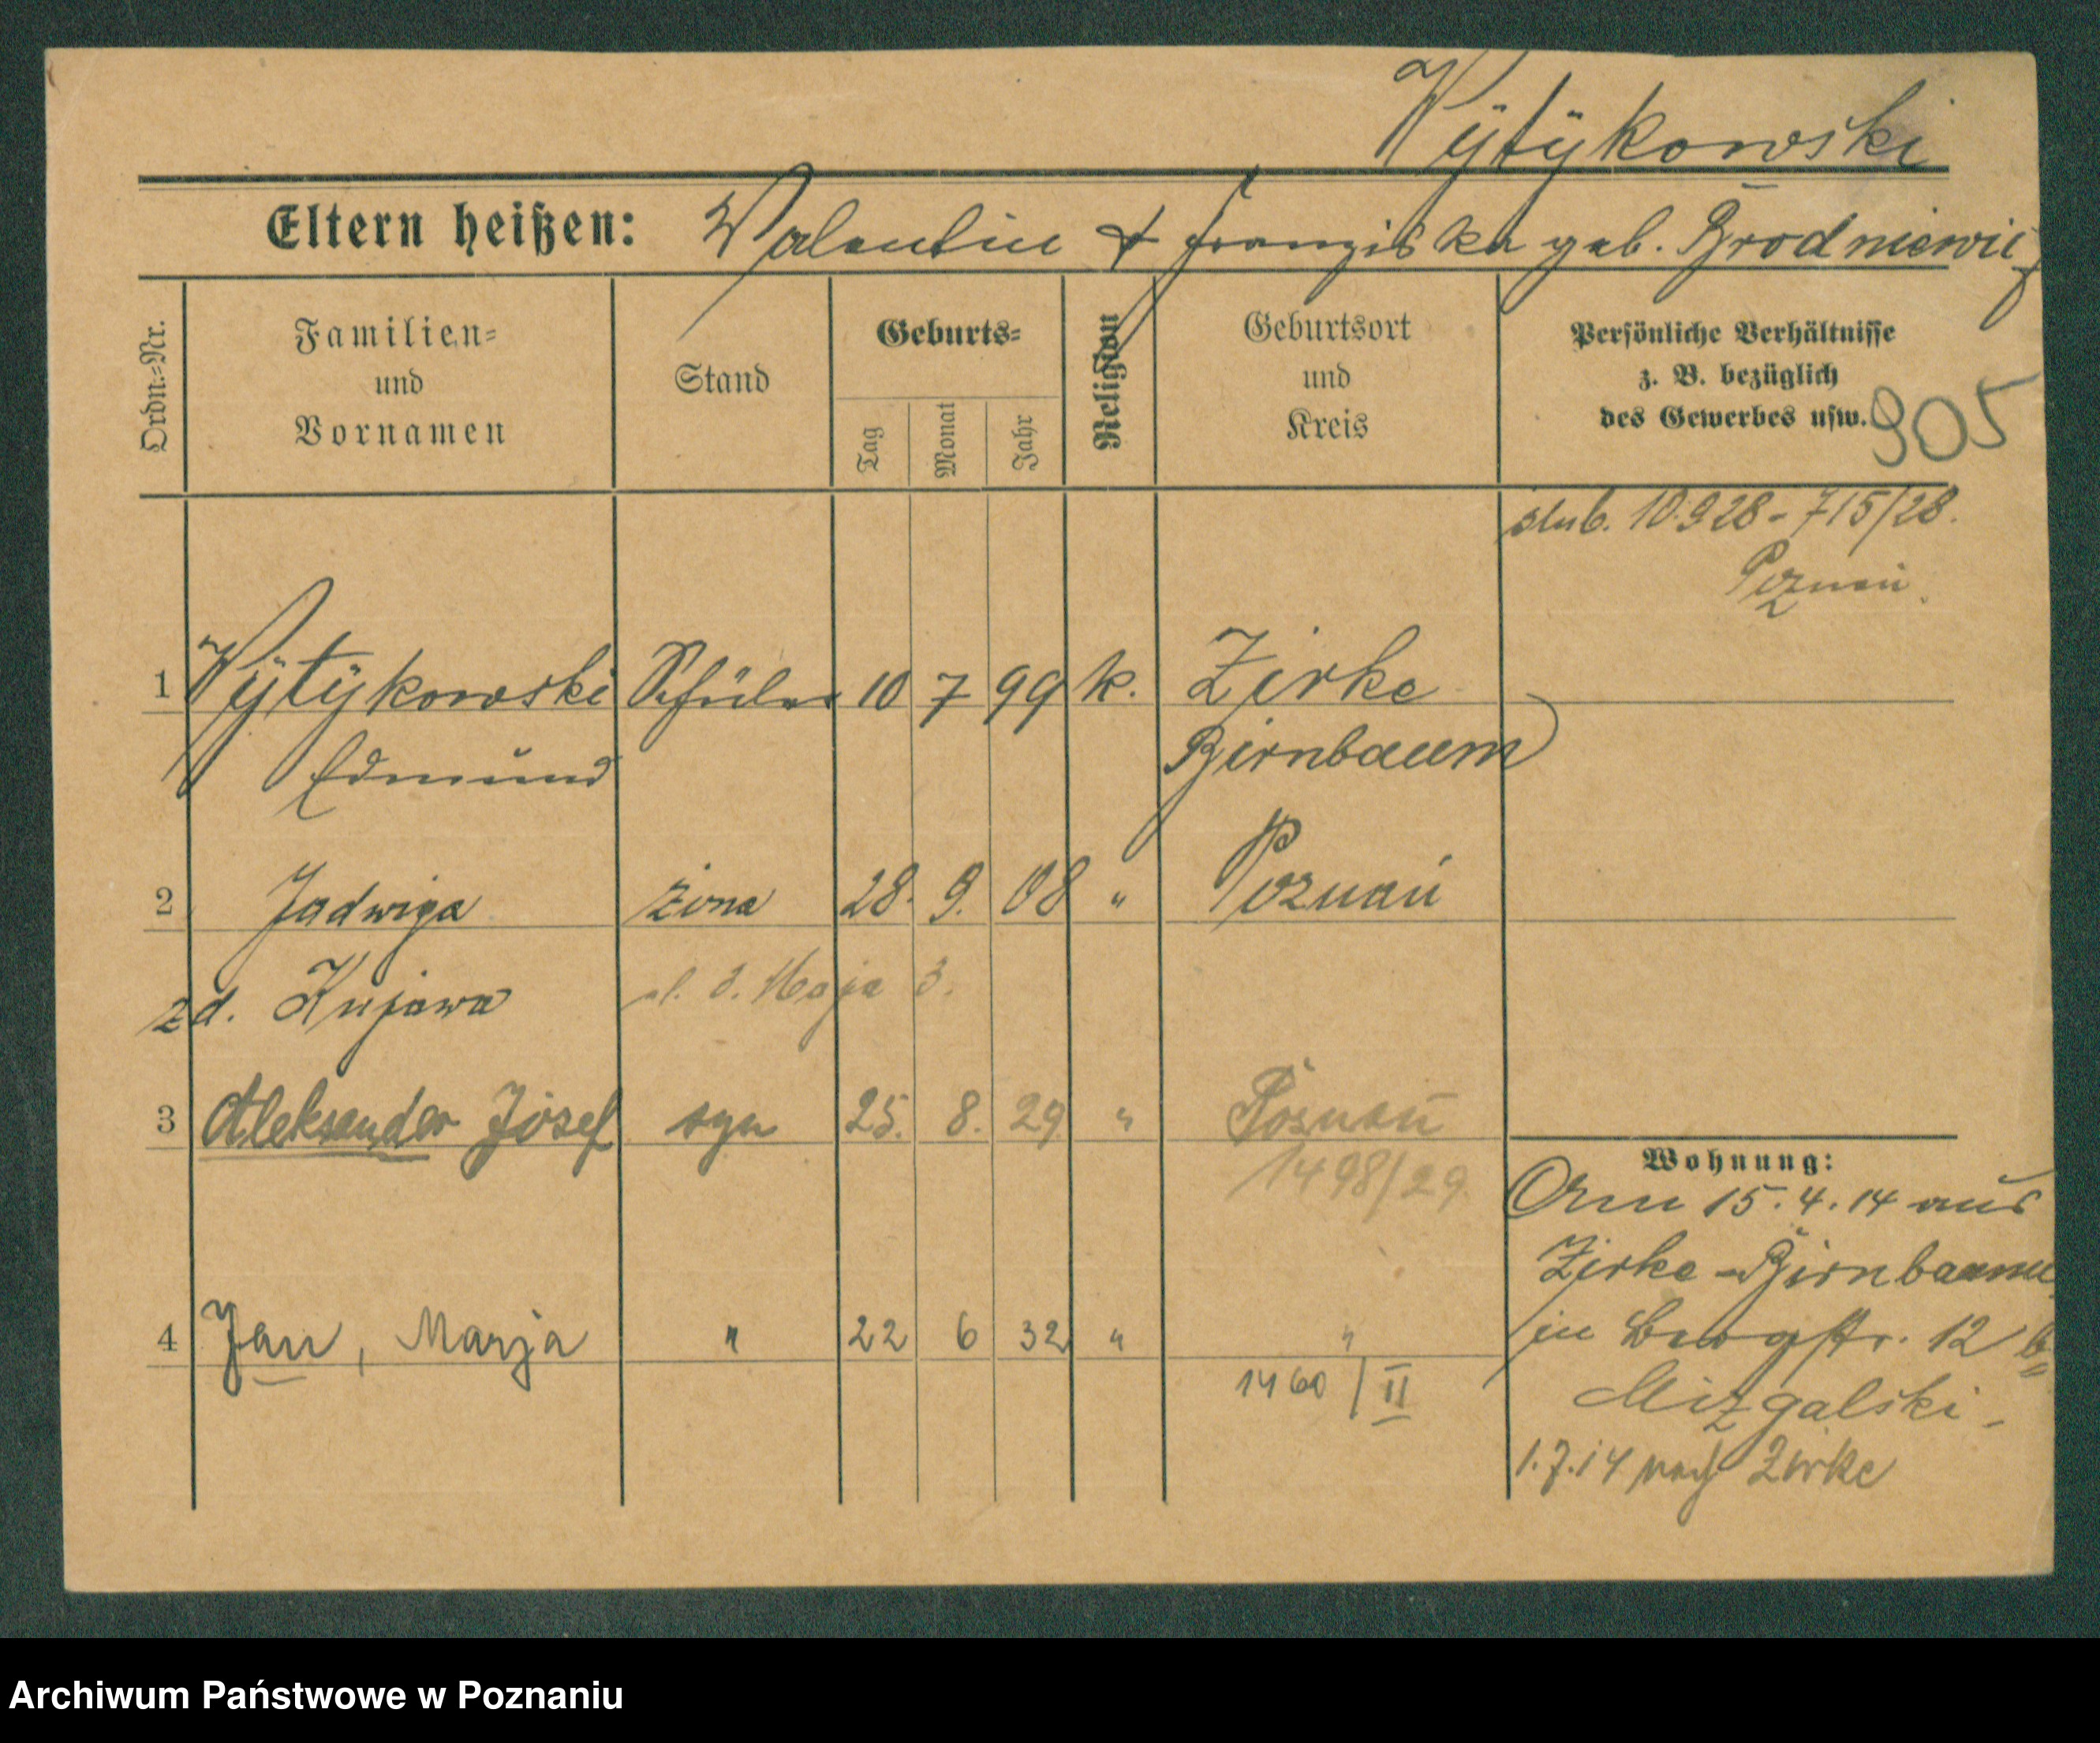 Wÿtÿkowski
Eltern heißen: Valentin & Franziska geb. Brodniewicz
Ordn.=Nr.
Familien=
und
Vornamen
Stand
Geburts=
Tag
Monat
Jahr
Religion
Geburtsort
und
Kreis
Persönliche Verhältnisse
z. B. bezüglich
des Gewerbes usw.
905
ślub. 10.9 28 - 715/28.
Poznań.
1 Wÿtÿkowski Schüler 10 7 99 k. Zirke
Edmund Birnbaum
2 Jadwiga żona 28. 9. 08 " Poznań
zd. Kujawa ul. 3. Maja 3.
3 Aleksander Józef syn 25. 8. 29 " Poznań
1498/29
4 Jan, Marja " 22 6 32 " "
1460/II
Wohnung:
15.4.14 aus
Zirke - Birnbaum
in Bergstr. 12 b
Mizgalski -
1.7.14 nach Zirke
Archiwum Państwowe w Poznaniu